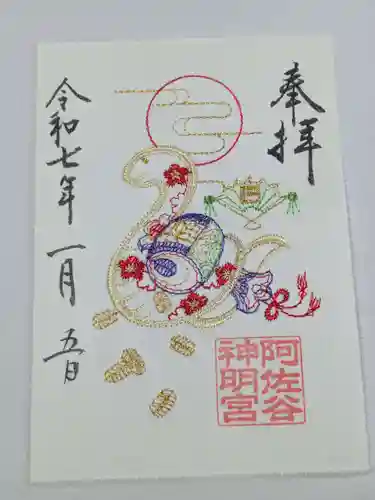 奉拝
阿佐谷
神明宮
令和七年一月五日